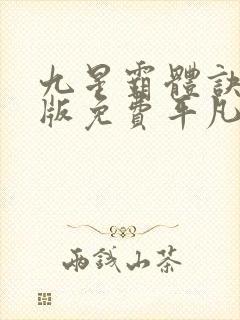 九星霸體訣
版免費平凡
雨錢山茶